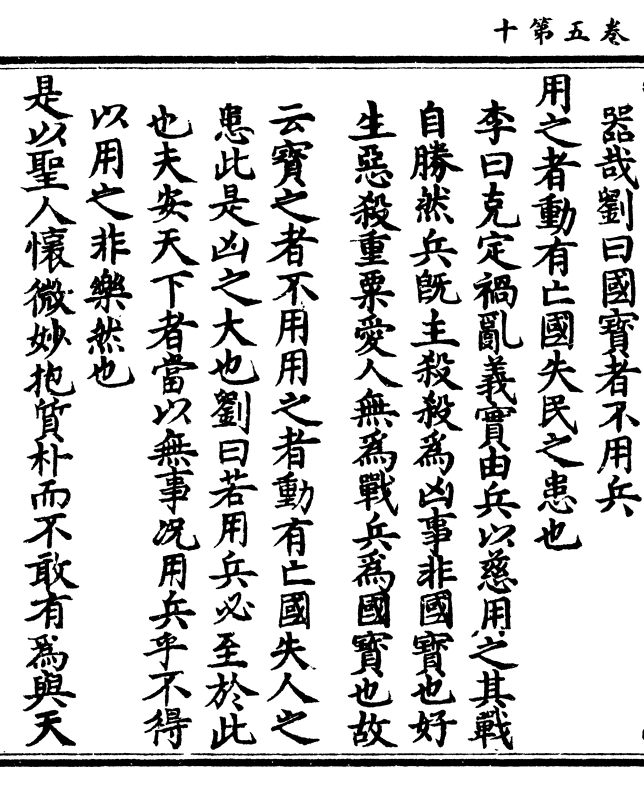 卷五第十
器哉劉曰國寶者不用兵
用之者動有亡國失民之患也
李曰克定禍亂義實由兵以慈用之其戰
自勝然兵旣主殺殺爲凶事非國寶也好
生惡殺重粟愛人無爲戰兵爲國寶也故
云寶之者不用用之者動有亡國失人之
患此是凶之大也劉曰若用兵必至於此
也夫安天下者當以無事况用兵乎不得
以用之非樂然也
是以聖人懷微妙抱質朴而不敢有爲與天